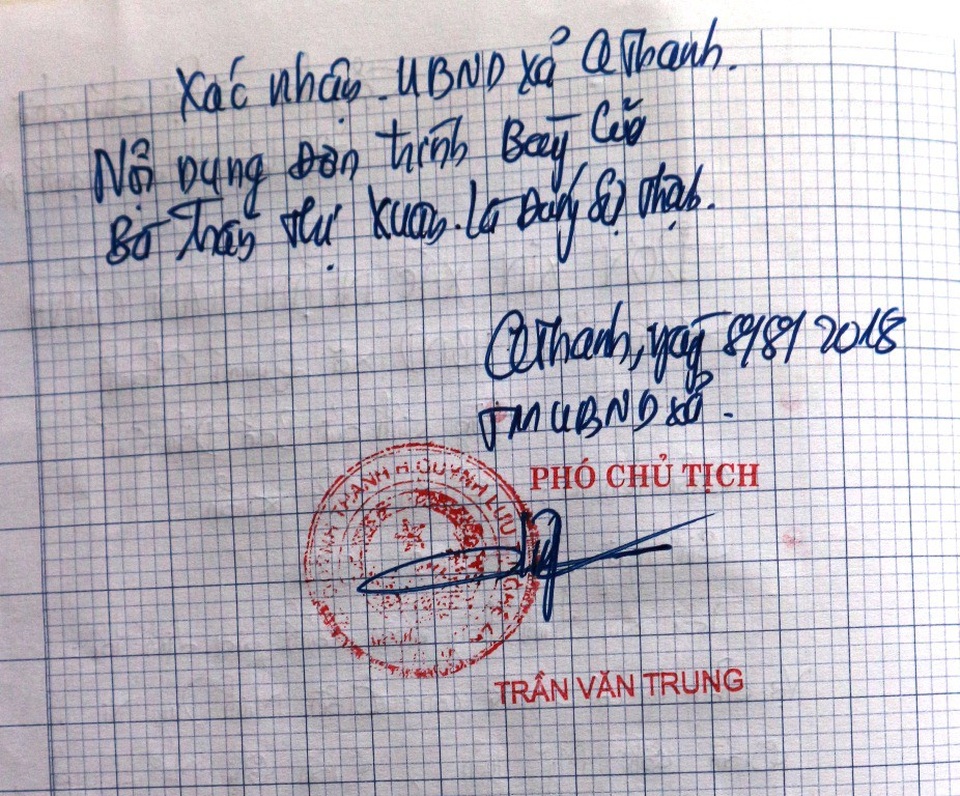 Xác nhận. UBND xã Q Thanh.
Nội dung đơn trình Bày Của
Bà Trần Thị Xuân. Là Đúng Sự Thật.
Q Thanh, ngày 8/8/2018
TM UBND xã.
PHÓ CHỦ TỊCH
QUỲNH THANH H.QUỲNH LƯU
TRẦN VĂN TRUNG